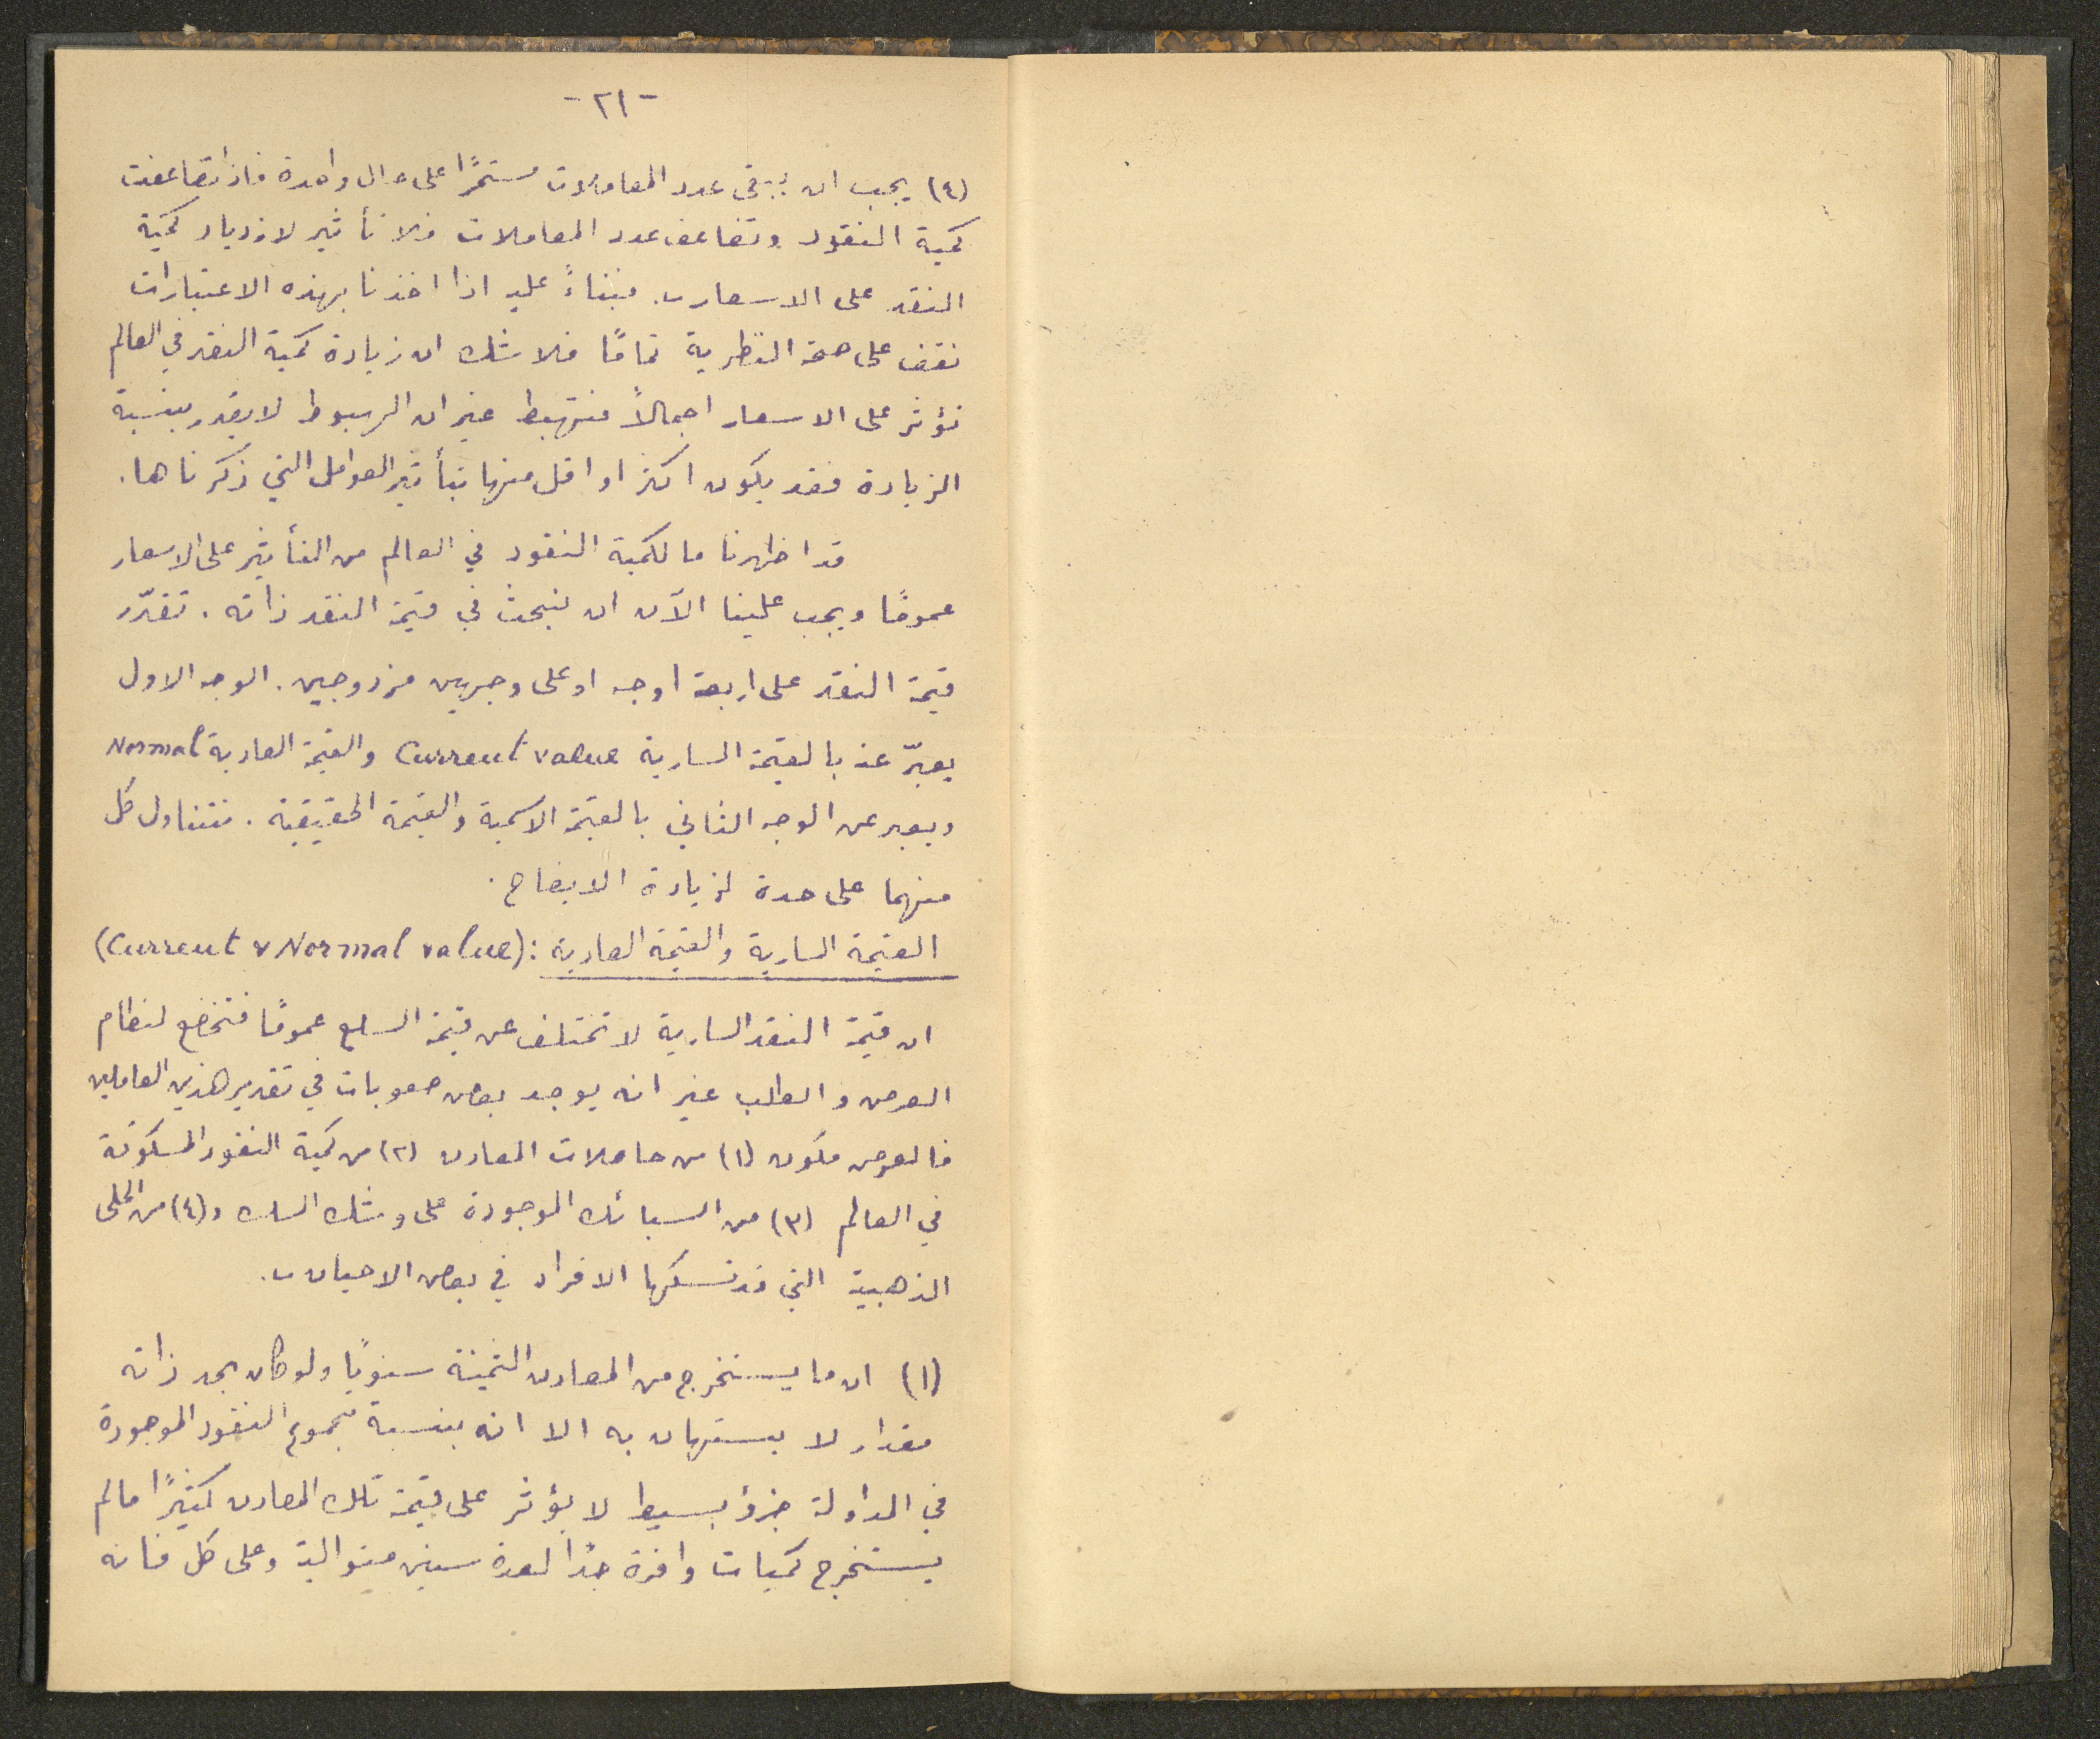 -٢١-
(٤) يجب ان يبقى عدد المعاملات مستمرًا على حال واحدة فاذا تضاعفت
كمية النقود وتضاعف عدد المعاملات فلا تأثير لازدياد كمية
النقد على الاسعار. فبناءً عليه اذا اخذنا بهذه الاعتبارات
نقف على صحة النظرية تمامًا فلا شك ان زيادة كمية النقد في العالم
تؤثر على الاسعار اجمالاً فتهبط غير ان الهبوط لا يقدر بنسبة
الزيادة فقد يكون اكثر او اقل منها بتأثير العوامل التي ذكرناها.
قد اظهرنا ما لكمية النقود في العالم من التأثير على الاسعار
عمومًا ويجب علينا الآن ان نبحث في قيمة النقد ذاته. تقدّر
قيمة النقد على اربعة اوجه او على وجهين مزدوجين. الوجه الاول
يعبّر عنه بالقيمة السارية Current value والقيمة العادية Normal
ويعبر عن الوجه الثاني بالقيمة الاسمية والقيمة الحقيقية. فنتناول كل
منهما على حدة لزيادة الايضاح.
القيمة السارية والقيمة العادية: (Current v Normal value)
ان قيمة النقد السارية لا تختلف عن قيمة السلع عمومًا فتخضع لنظام
العرض والطلب غير انه يوجد بعض صعوبات في تقدير هذين العاملين
فالعرض مكون (١) من حاصلات المعادن (٢) من كمية النقود المسكوكة
في العالم (٣) من السبائك الموجودة على وشك السك و(٤) من الحلى
الذهبية التي قد تسكها الافراد في بعض الاحيان.
(١) ان ما يستخرج من المعادن الثمينة سنويًا ولو كان بحد ذاته
مقدار لا يستهان به الا انه بنسبة مجموع النقود الموجودة
في المداولة جزؤ بسيط لا يؤثر على قيمة تلك المعادن كثيرًا مالم
يستخرج كميات وافرة جدًا لعدة سنين متوالية وعلى كل فانه